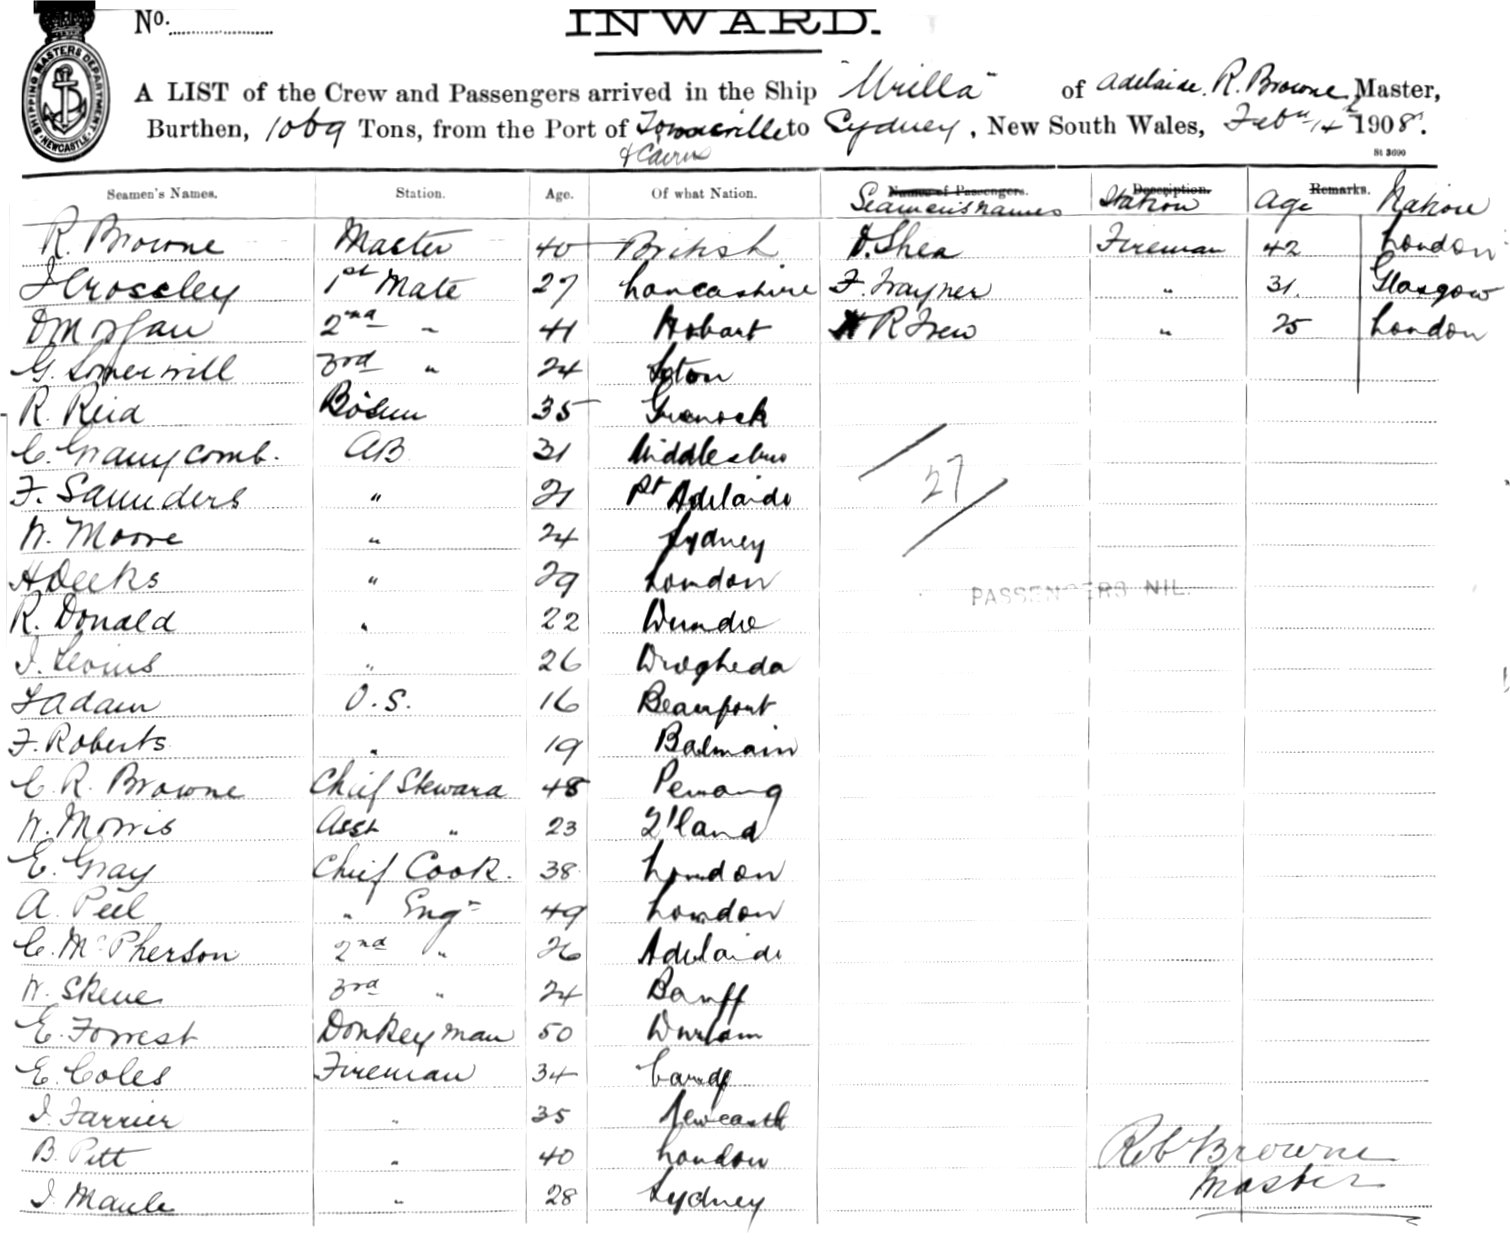 No.
INWARD.
SHIPPING MASTERS DEPARTMENT NEWCASTLE
A LIST of the Crew and Passengers arrived in the Ship "Urilla" of Adelaide, R. Browne, Master,
Burthen, 1069 Tons, from the Port of Townsville to Sydney, New South Wales, Feby 14th 1908.
& Cairns
St 3690
Seamen's Names. Station. Age. Of what Nation. Names of Passengers. Description. Remarks.
Seamen's names Station Age Nation
R. Browne Master 40 British D. Shea Fireman 42 London
J Crossley 1st Mate 27 Lancashire F. Trayner " 31. Glasgow
D Morgan 2nd " 41 Hobart R Frew " 25 London
G. Somerville 3rd " 24
R. Reid Bosun 35 Greenock
C. Grannycomb. AB 31 Middlesbro
27
F. Saunders " 21 Pt Adelaide
W. Moore " 24 Sydney
H Deeks " 29 London
PASSENGERS NIL.
R. Donald " 22 Dundee
J. Lewis " 26 Drogheda
J Adam O.S. 16 Beaufort
F. Roberts " 19 Balmain
C. R. Browne Chief Steward 48 Penang
W. Morris Asst " 23 Q'land
E. Gray Chief Cook. 38 London
A. Peel " Engr 49 London
C. McPherson 2nd " 26 Adelaide
W. Skene 3rd " 24 Banff
E. Forrest Donkeyman 50 Durham
E. Coles Fireman 34 Cardiff
J. Farrier " 35 Newcastle
B. Pitt " 40 London
Rob Browne
J. Maule " 28 Sydney
Master